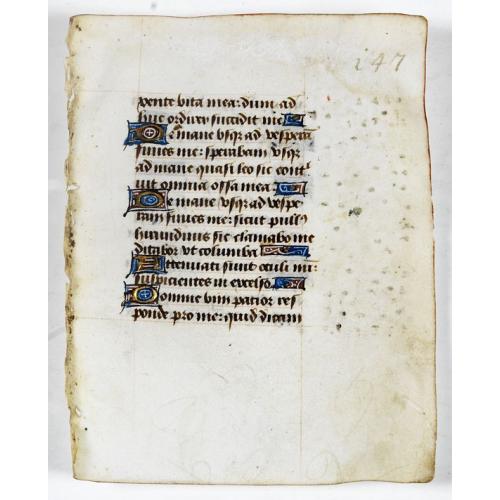 147
vente vita mea: dum ad
huc ordirer succidit me
De mane vsqz ad vespera
finies me: sperabam vsqz
ad mane quasi leo sic cont
uit omnia ossa mea
De mane vsqz ad vespe
ram finies me: sicut pull9
hirundinis sic clamabo me
ditabor vt columba
Attenuati sunt oculi mi:
suspicientes in excelso
Domine vim patior res
ponde pro me: quid dicam